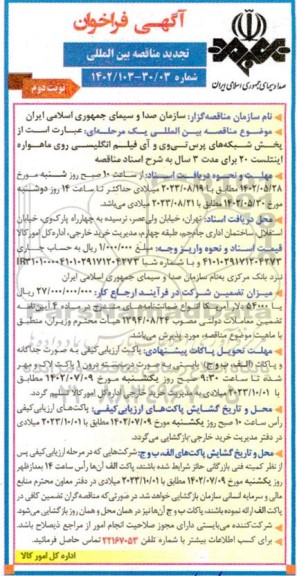 آگهی فراخوان
تجدید مناقصه بین المللی
شماره ۳۰/۰۳-۱۴۰۲/۱۰۳
نوبت دوم
صدا و سیمای جمهوری اسلامی ایران
نام سازمان مناقصه‌گزار: سازمان صدا و سیمای جمهوری اسلامی ایران
موضوع مناقصه بین المللی یک مرحله‌ای: عبارت است از
پخش شبکه‌های پرس‌تی‌وی و آی فیلم انگلیسی روی ماهواره
اینتلست ۲۰ برای مدت ۳ سال به شرح اسناد مناقصه
مهلت و نحوه دریافت اسناد: از ساعت ۱۰ صبح روز شنبه مورخ
۱۴۰۲/۰۵/۲۸ مطابق با ۲۰۲۳/۰۸/۱۹ میلادی حداکثر تا ساعت ۱۴ روز دوشنبه
مورخ ۱۴۰۲/۰۵/۳۰ مطابق با ۲۰۲۳/۰۸/۲۱ میلادی می‌باشد.
محل دریافت اسناد: تهران، خیابان ولی‌عصر، نرسیده به چهارراه پارک‌وی، خیابان
استقلال، ساختمان اداری جام‌جم، طبقه چهارم، مدیریت خرید خارجی، اداره کل امور کالا
قیمت اسناد و نحوه واریز وجه: مبلغ ۱/۰۰۰/۰۰۰ ریال به حساب جاری
۴۱۰۱۰۲۹۱۷۱۲۰۴۲۷۳ و با شماره شبا
نزد بانک مرکزی به‌نام سازمان صدا و سیمای جمهوری اسلامی ایران
میزان تضمین شرکت در فرآیند ارجاع کار: ۲۷/۰۰۰/۰۰۰/۰۰۰ ریال
تضمین معاملات دولتی مصوب ۱۳۹۴/۰۸/۲۴ هیأت محترم وزیران، منطبق
با ماهیت موضوع مناقصه، مورد پذیرش می‌باشد.
مهلت تحویل پاکات پیشنهادی: پاکت ارزیابی کیفی به صورت جداگانه
و پاکات (الف، ب و ج) بایستی به صورت دربسته درون ۱ پاکت لاک و مهر
شده تا ساعت ۹:۳۰ صبح روز یکشنبه مورخ ۱۴۰۲/۰۷/۰۹ مطابق
با ۲۰۲۳/۱۰/۰۱ میلادی به مدیریت خرید خارجی اداره کل امور کالا تسلیم گردد.
محل و تاریخ گشایش پاکت‌های ارزیابی کیفی: پاکت‌های ارزیابی کیفی
رأس ساعت ۱۰ صبح روز یکشنبه مورخ ۱۴۰۲/۰۷/۰۹ مطابق با ۲۰۲۳/۱۰/۰۱ میلادی
در دفتر مدیریت خرید خارجی بازگشایی می‌گردد.
محل و تاریخ گشایش پاکت‌های الف، ب و ج: شرکت‌هایی که در مرحله ارزیابی کیفی پس
از نظر کمیته فنی بازرگانی حائز شرایط شده باشند، پاکت الف آن‌ها رأس ساعت ۱۴ بعدازظهر
روز یکشنبه مورخ ۱۴۰۲/۰۷/۰۹ مطابق با ۲۰۲۳/۱۰/۰۱ میلادی در دفتر معاون محترم منابع
مالی و سرمایه انسانی سازمان بازگشایی خواهد شد. در صورتی که مناقصه‌گران تضمین کافی در
پاکت الف ارائه نموده باشند، پاکات ب و ج آن‌ها نیز در همان محل و همان روز بازگشایی می‌شود.
شرکت‌کننده می‌بایستی دارای مجوز صلاحیت انجام امور از مراجع ذیصلاح باشد.
برای کسب اطلاعات بیشتر با شماره تلفن ۲۲۱۶۷۰۵۳ تماس حاصل فرمائید.
اداره کل امور کالا